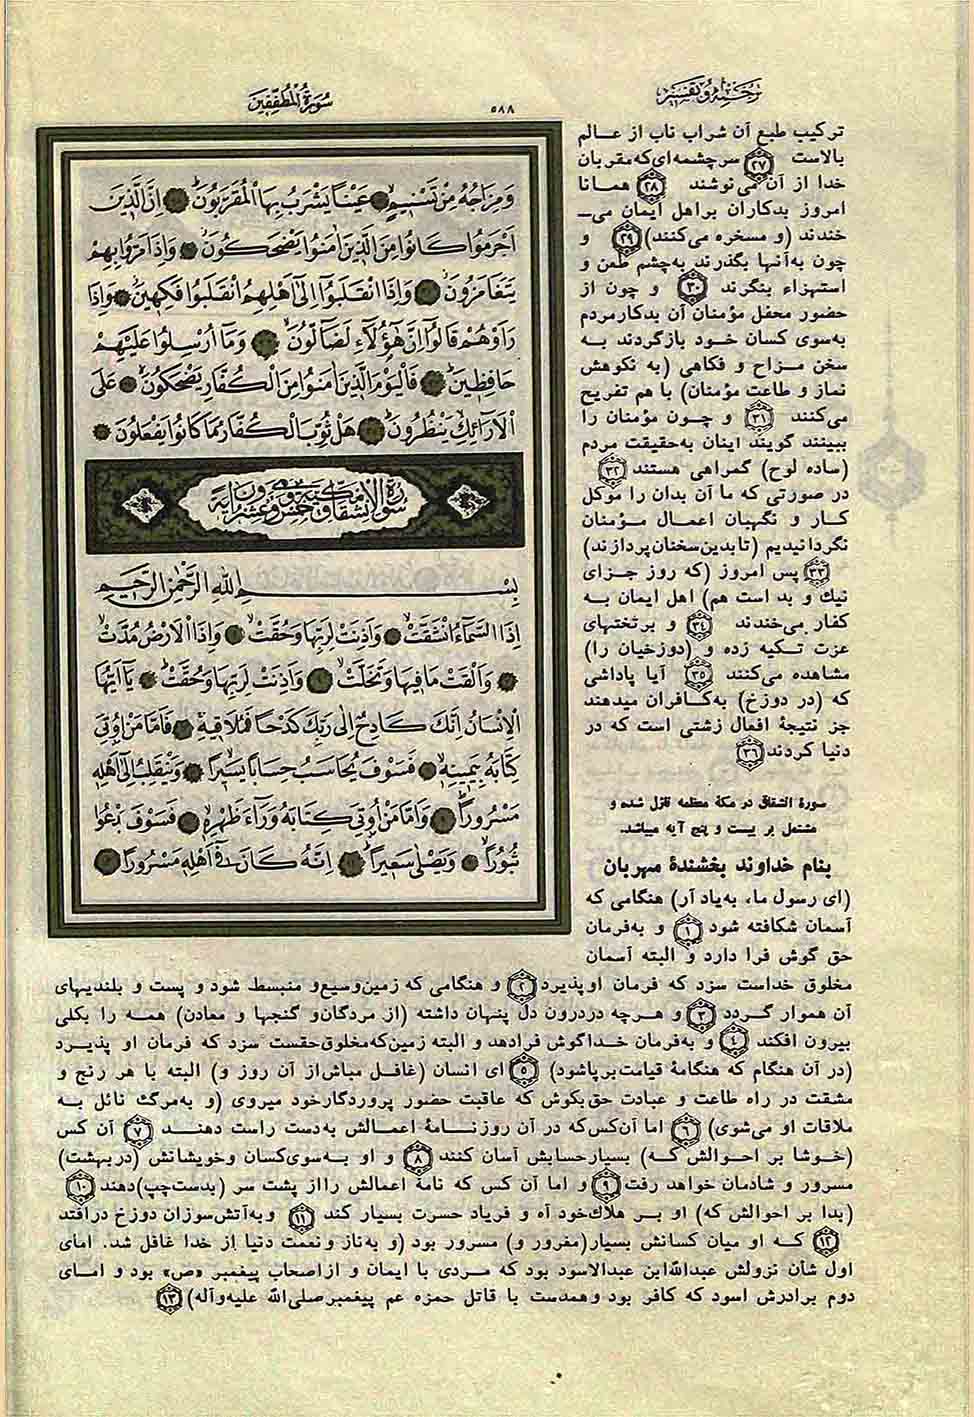 ترجمه و تفسیر
۵۸۸
سُورَةُ الْمُطَفِّفِین
وَمِزَاجُهُ مِنْ تَسْنِیمٍ عَیْنًا یَشْرَبُ بِهَا الْمُقَرَّبُونَ إِنَّ الَّذِینَ
اَجْرَمُوا کَانُوا مِنَ الَّذِینَ اٰمَنُوا یَضْحَکُونَ وَاِذَا مَرُّوا بِهِمْ
یَتَغَامَزُونَ وَاِذَا انْقَلَبُوا اِلیٰ اَهْلِهِمُ انْقَلَبُوا فَکِهِینَ وَاِذَا
رَاَوْهُمْ قَالُوا اِنَّ هٰؤُلَآءِ لَضَآلُّونَ وَمَا اُرْسِلُوا عَلَیْهِمْ
حَافِظِینَ فَالْیَوْمَ الَّذِینَ اٰمَنُوا مِنَ الْکُفَّارِ یَضْحَکُونَ عَلَی
الْاَرَائِکِ یَنْظُرُونَ هَلْ ثُوِّبَ الْکُفَّارُ مَا کَانُوا یَفْعَلُونَ
سورة الانشقاق مکیة وهی خمس وعشرون آیة
بِسْمِ اللهِ الرَّحْمٰنِ الرَّحِیمِ
اِذَا السَّمَآءُ انْشَقَّتْ وَاَذِنَتْ لِرَبِّهَا وَحُقَّتْ وَاِذَا الْاَرْضُ مُدَّتْ
وَاَلْقَتْ مَا فِیهَا وَتَخَلَّتْ وَاَذِنَتْ لِرَبِّهَا وَحُقَّتْ یَا اَیُّهَا
الْاِنْسَانُ اِنَّکَ کَادِحٌ اِلیٰ رَبِّکَ کَدْحًا فَمُلَاقِیهِ فَاَمَّا مَنْ اُوتِیَ
کِتَابَهُ بِیَمِینِهِ فَسَوْفَ یُحَاسَبُ حِسَابًا یَسِیرًا وَیَنْقَلِبُ اِلیٰ اَهْلِهِ
مَسْرُورًا وَاَمَّا مَنْ اُوتِیَ کِتَابَهُ وَرَآءَ ظَهْرِهِ فَسَوْفَ یَدْعُوا
ثُبُورًا وَیَصْلیٰ سَعِیرًا اِنَّهُ کَانَ فِی اَهْلِهِ مَسْرُورًا
ترکیب طبع آن شراب ناب از عالم
بالاست ۲۷ سرچشمه‌ای که مقربان
خدا از آن می‌نوشند ۲۸ همانا
امروز بدکاران براهل ایمان می‌ـ
خندند (و مسخره می‌کنند) ۲۹ و
چون به‌آنها بگذرند به‌چشم طعن و
استهزاء بنگرند ۳۰ و چون از
حضور محفل مؤمنان آن بدکارمردم
به‌سوی کسان خود بازگردند به
سخن مزاح و فکاهی (به نکوهش
نماز و طاعت مؤمنان) با هم تفریح
می‌کنند ۳۱ و چون مؤمنان را
ببینند گویند اینان به‌حقیقت مردم
(ساده لوح) گمراهی هستند ۳۲
در صورتی که ما آن بدان را موکل
کار و نگهبان اعمال مؤمنان
نگردانیدیم (تا بدین سخنان پردازند)
۳۳ پس امروز (که روز جزای
نیك و بد است هم) اهل ایمان به
کفار می‌خندند ۳۴ و برتختهای
عزت تکیه زده و (دوزخیان را)
مشاهده می‌کنند ۳۵ آیا پاداشی
که (در دوزخ) به‌کافران میدهند
جز نتیجهٔ افعال زشتی است که در
دنیا کردند ۳۶
سورهٔ انشقاق در مکهٔ معظمه نازل شده و
مشتمل بر بیست و پنج آیه میباشد.
بنام خداوند بخشندهٔ مهربان
(ای رسول ما، به‌یاد آر) هنگامی که
آسمان شکافته شود ۱ و به‌فرمان
حق گوش فرا دارد و البته آسمان
مخلوق خداست سزد که فرمان او پذیرد ۲ و هنگامی که زمین وسیع و منبسط شود و پست و بلندیهای
آن هموار گردد ۳ و هرچه دردرون دل پنهان داشته (از مردگان و گنجها و معادن) همه را بکلی
بیرون افکند ۴ و به‌فرمان خدا گوش فرادهد و البته زمین که مخلوق حقست سزد که فرمان او پذیرد
(در آن هنگام که هنگامهٔ قیامت برپاشود) ۵ ای انسان (غافل مباش از آن روز و) البته با هر رنج و
مشقت در راه طاعت و عبادت حق بکوش که عاقبت حضور پروردگار خود میروی (و به‌مرگ نائل به
ملاقات او می‌شوی) ۶ اما آن کس که در آن روز نامهٔ اعمالش به‌دست راست دهند ۷ آن کس
(خوشا بر احوالش که) بسیار حسابش آسان کنند ۸ و او به‌سوی کسان و خویشانش (در بهشت)
مسرور و شادمان خواهد رفت ۹ و اما آن کس که نامهٔ اعمالش را از پشت سر (بدست چپ) دهند ۱۰
(بدا بر احوالش که) او بر هلاك خود آه و فریاد حسرت بسیار کند ۱۱ و به‌آتش سوزان دوزخ درافتد
۱۲ که او میان کسانش بسیار (مغرور و) مسرور بود (و به‌ناز و نعمت دنیا از خدا غافل شد. امای
اول شأن نزولش عبدالله ابن عبدالاسود بود که مردی با ایمان و از اصحاب پیغمبر «ص» بود و امای
دوم برادرش اسود که کافر بود و همدست با قاتل حمزه عم پیغمبر صلی‌الله علیه‌وآله) ۱۳